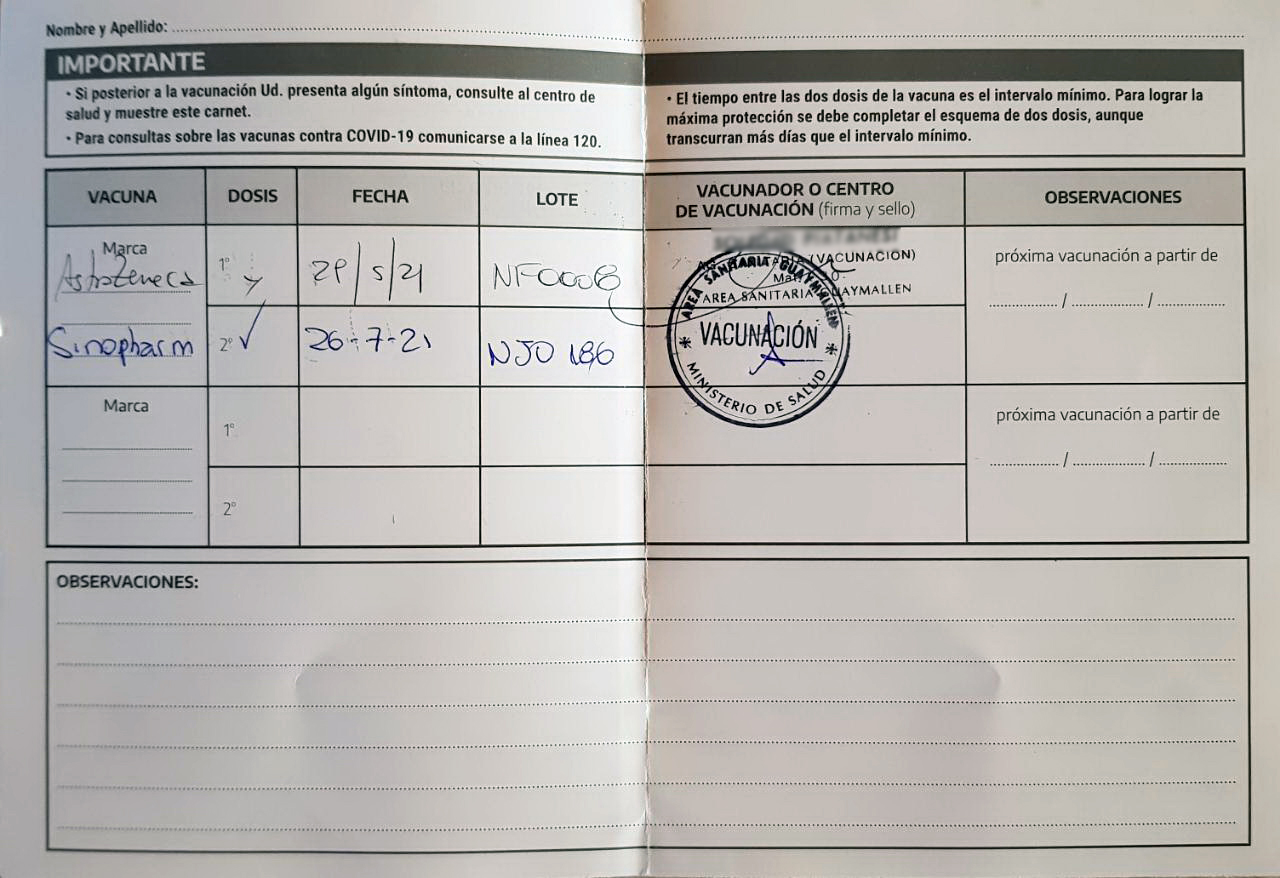 Nombre y Apellido:
IMPORTANTE
• Si posterior a la vacunación Ud. presenta algún síntoma, consulte al centro de
salud y muestre este carnet.
• Para consultas sobre las vacunas contra COVID-19 comunicarse a la línea 120.
• El tiempo entre las dos dosis de la vacuna es el intervalo mínimo. Para lograr la
máxima protección se debe completar el esquema de dos dosis, aunque
transcurran más días que el intervalo mínimo.
VACUNA DOSIS FECHA LOTE VACUNADOR O CENTRO
DE VACUNACIÓN (firma y sello) OBSERVACIONES
Marca
AstraZeneca 1° /5/21 NF0008
(VACUNACION)
AREA SANITARIA GUAYMALLEN
próxima vacunación a partir de
/ /
Sinopharm 2° 26-7-21 NJO 186
AREA SANITARIA GUAYMALLEN
VACUNACIÓN
MINISTERIO DE SALUD
Marca
1°
2°
próxima vacunación a partir de
/ /
OBSERVACIONES: